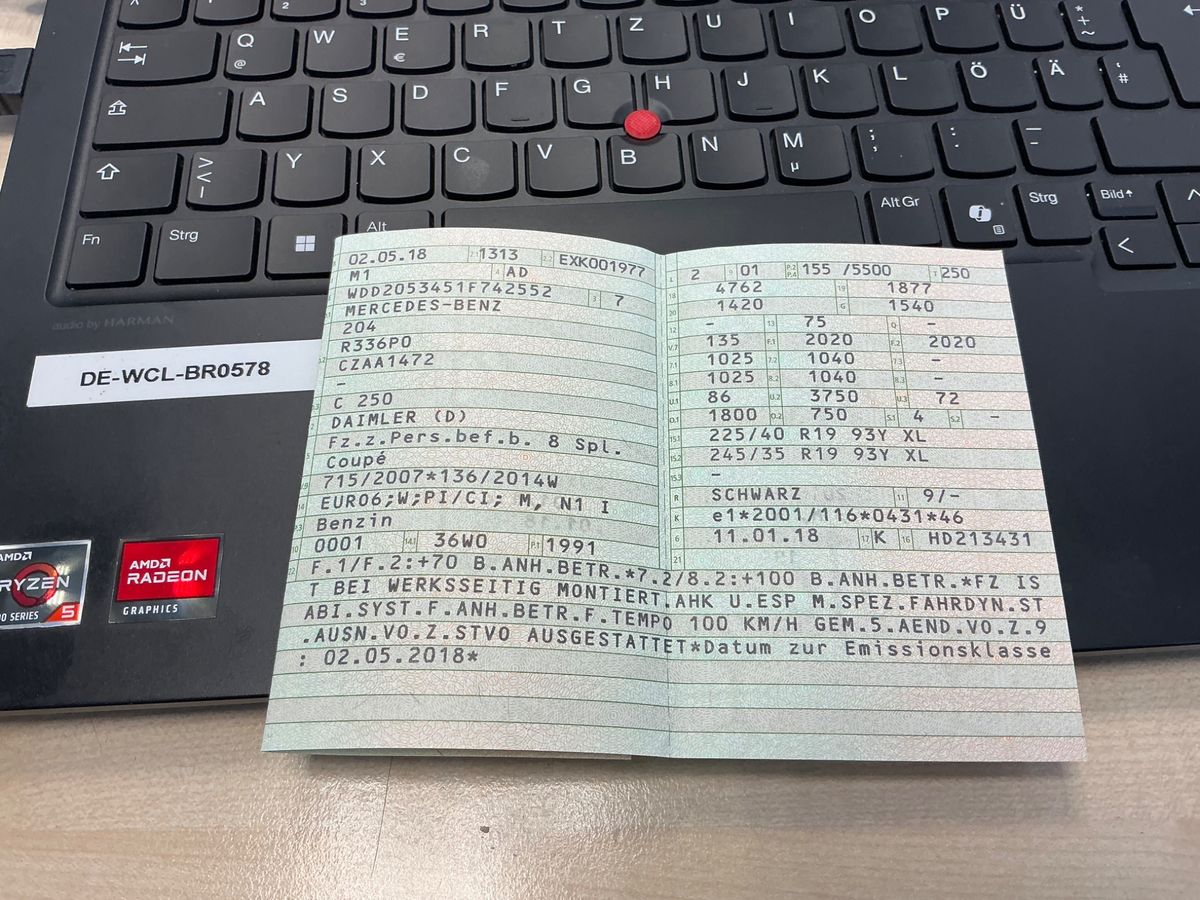 Q @ W E € R T Z U I O P Ü * + ~
A S D F G H J K L Ö Ä ' #
> < | Y X C V B N M µ ; , : . _ -
Fn Strg Alt Alt Gr Strg Bild
audio by HARMAN
DE-WCL-BR0578
AMD
RYZEN
5
AMD
RADEON
GRAPHICS
02.05.18 2.1 1313 2.2 EXK001977
M1 4 AD
WDD2053451F742552 3 7
MERCEDES-BENZ
204
R336P0
CZAA1472
–
C 250
DAIMLER (D)
Fz.z.Pers.bef.b. 8 Spl.
Coupé
715/2007*136/2014W
EURO6;W;PI/CI; M, N1 I
Benzin
0001 14.1 36W0 P.1 1991
L 2 9 01 P.2 P.4 155 /5500 T 250
18 4762 19 1877
20 1420 G 1540
12 – 13 75 Q –
V.7 135 F.1 2020 F.2 2020
7.1 1025 7.2 1040 7.3 –
8.1 1025 8.2 1040 8.3 –
U.1 86 U.2 3750 U.3 72
O.1 1800 O.2 750 S.1 4 S.2 –
15.1 225/40 R19 93Y XL
15.2 245/35 R19 93Y XL
15.3 –
R SCHWARZ 11 9/-
K e1*2001/116*0431*46
6 11.01.18 17 K 16 HD213431
21
F.1/F.2:+70 B.ANH.BETR.*7.2/8.2:+100 B.ANH.BETR.*FZ IS
T BEI WERKSSEITIG MONTIERT.AHK U.ESP M.SPEZ.FAHRDYN.ST
ABI.SYST.F.ANH.BETR.F.TEMPO 100 KM/H GEM.5.AEND.VO.Z.9
.AUSN.VO.Z.STVO AUSGESTATTET*Datum zur Emissionsklasse
: 02.05.2018*